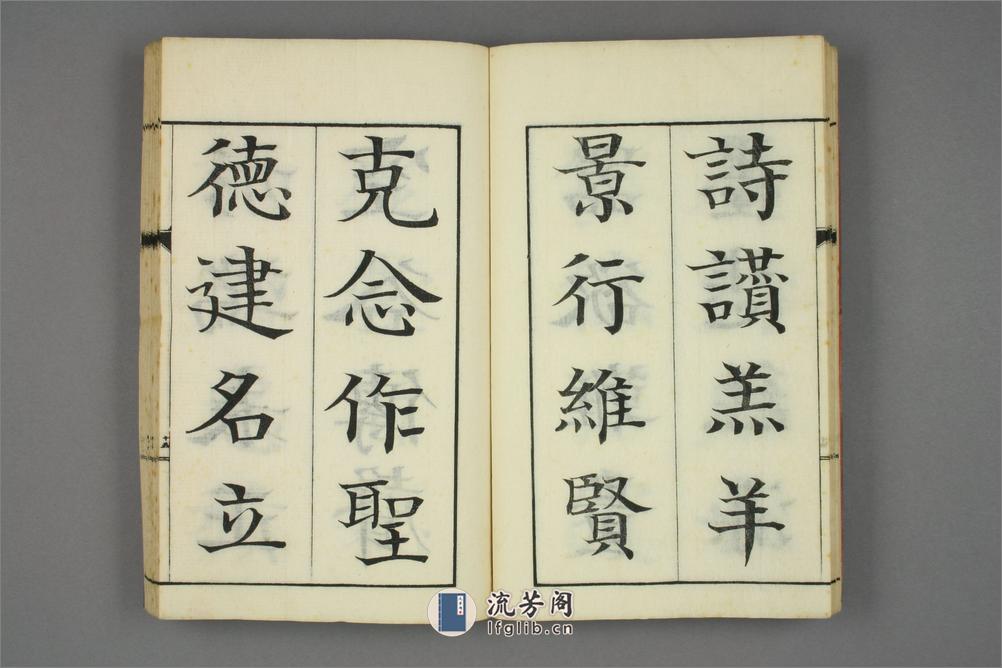 詩讃羔羊
景行維賢
克念作聖
德建名立
流芳阁
lfglib.cn